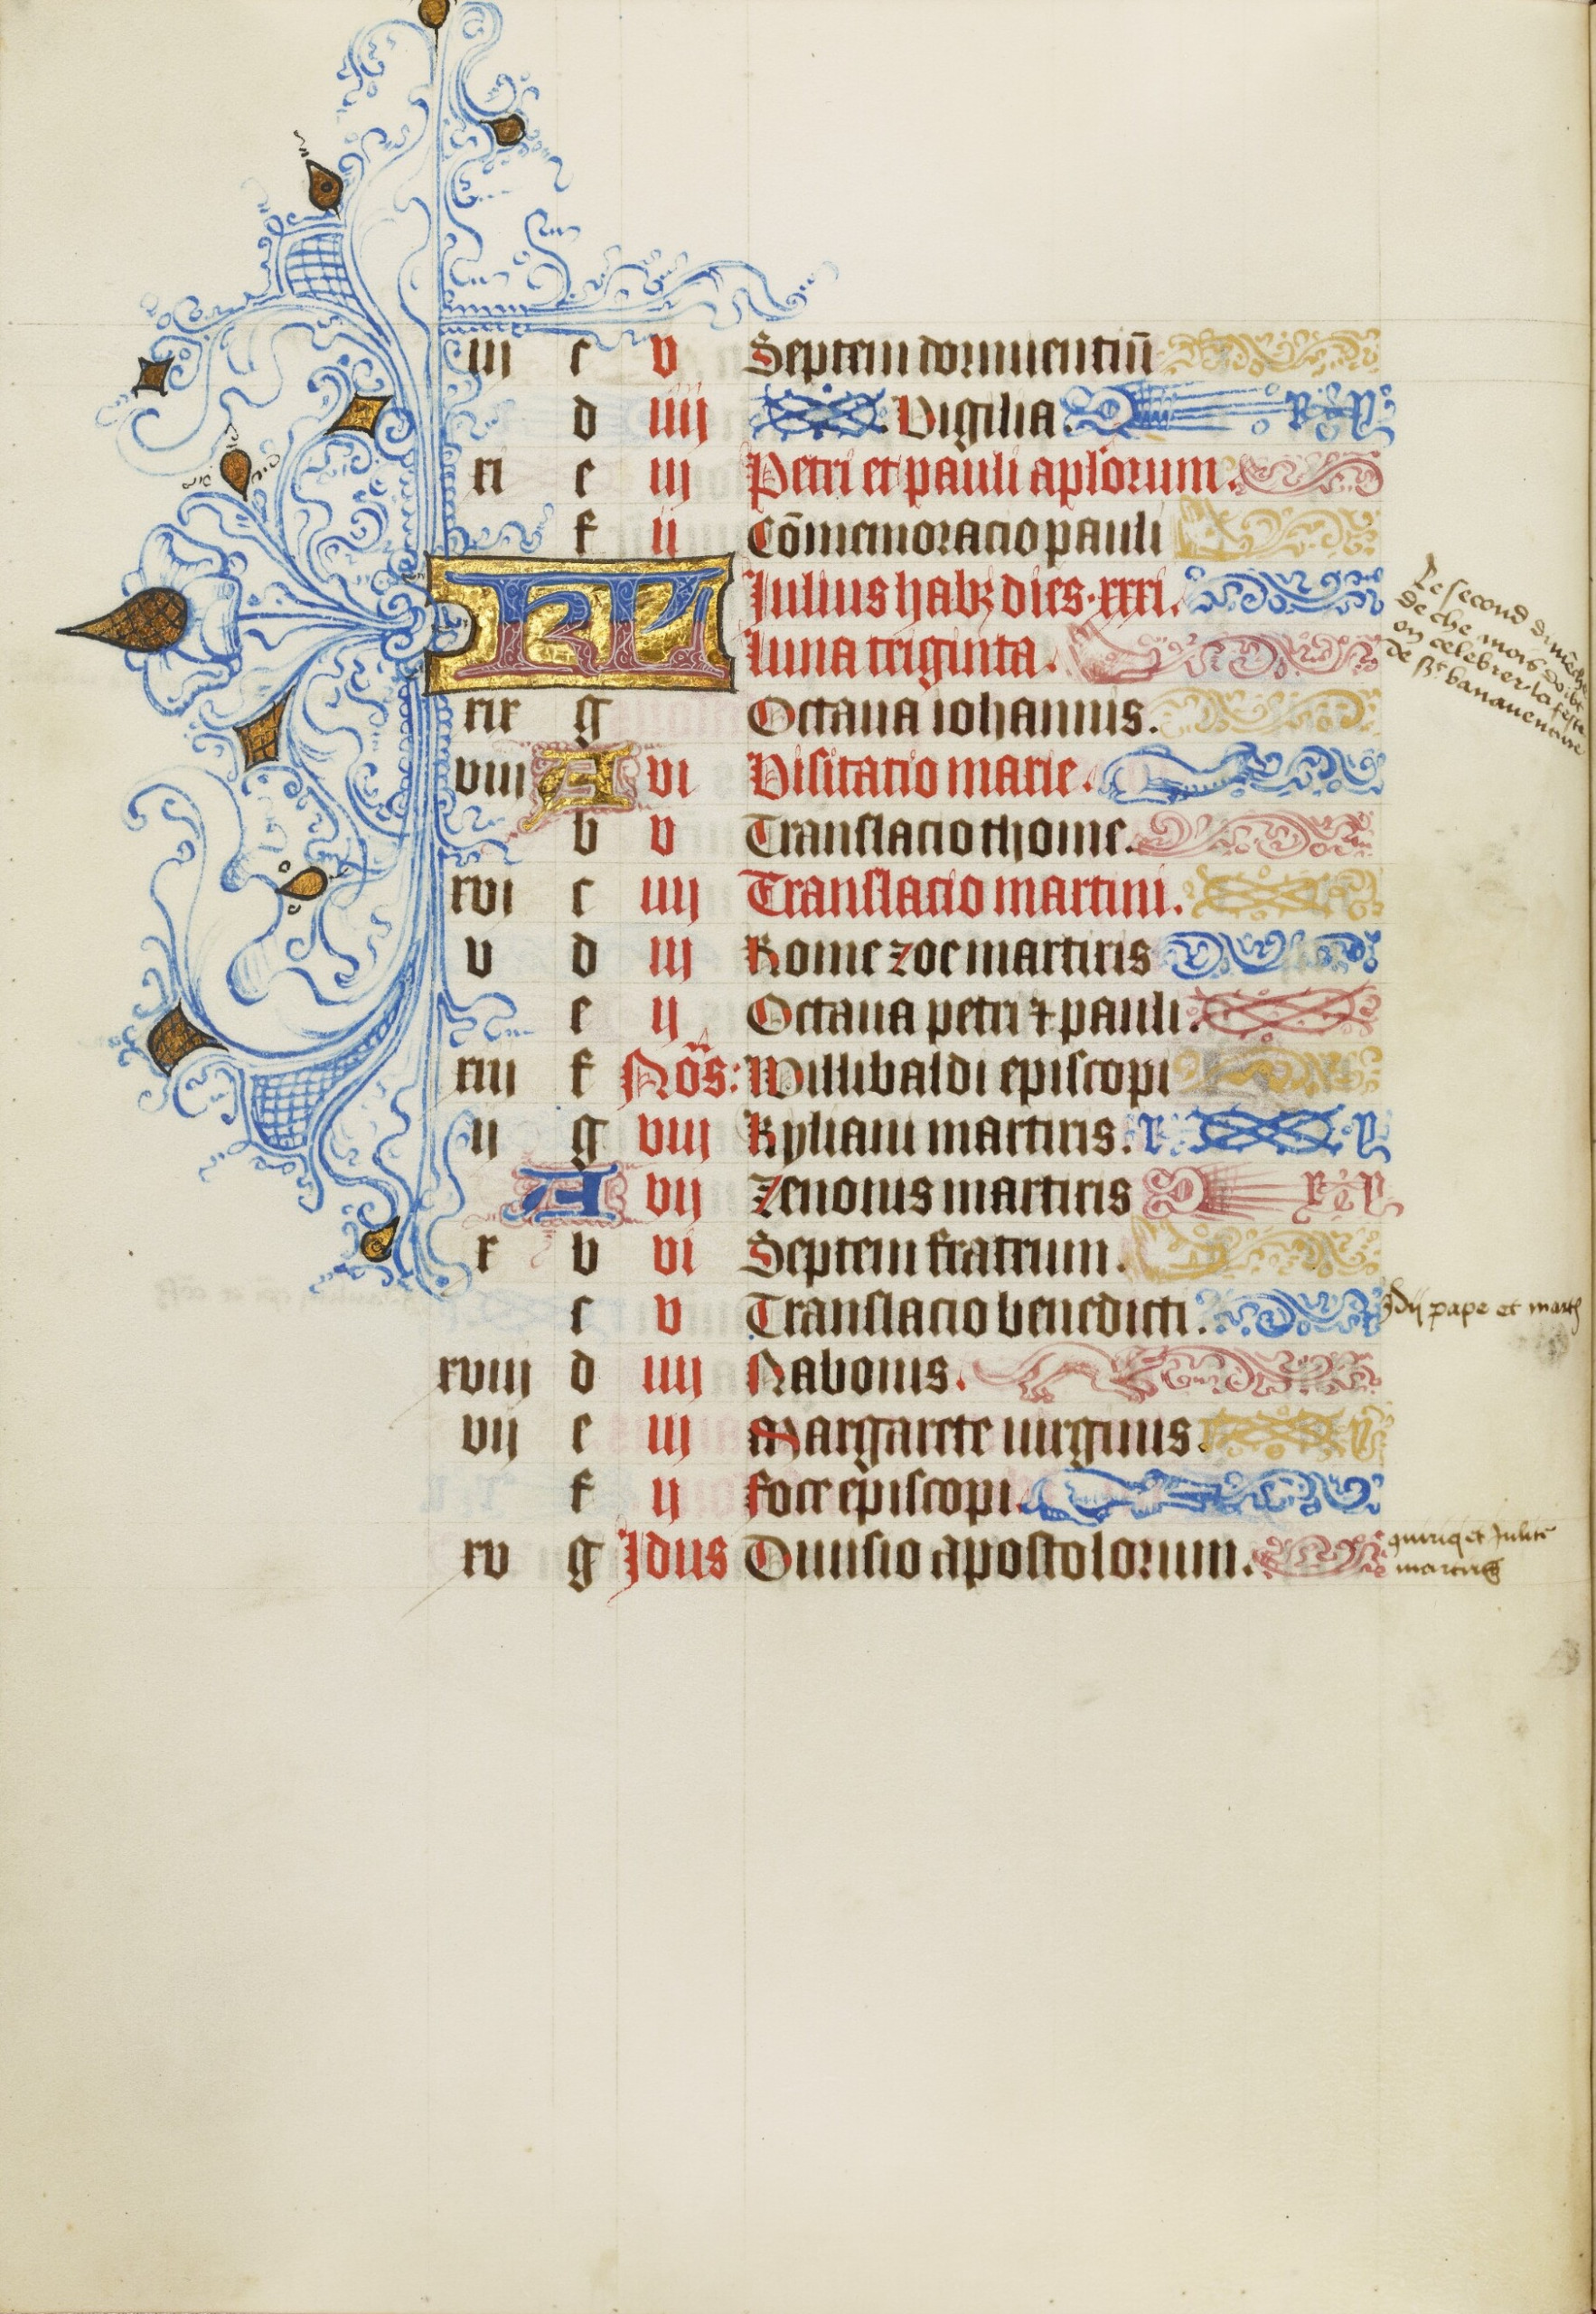 iij c v Septem dormientiū
d iiij Vigilia.
xi e iij Petri et pauli aplorum.
f ij Cōmemoracio pauli
KL Iulius habꝫ dies·xxxi.
luna triginta.
xix g Octaua iohannis.
viij A vi Visitatio marie.
b v Translacio thome.
xvi c iiij Translacio martini.
v d iij Rome zoe martiris
e ij Octaua petri ⁊ pauli.
xiii f Nōs: Willibaldi episcopi
ij g viij Kyliani martiris.
A vij Zenonis martiris
x b vi Septem fratrum.
c v Translacio benedicti.
xviij d iiij Nabonis.
vij e iij Margarete uirginis.
f ij foce episcopi.
xv g Idus Diuisio apostolorum.
Le second dimēche
de che mois doibt
on celebrer la feste
de st. bonauenture
pii pape et mart
quiriq et Julite
martirꝫ